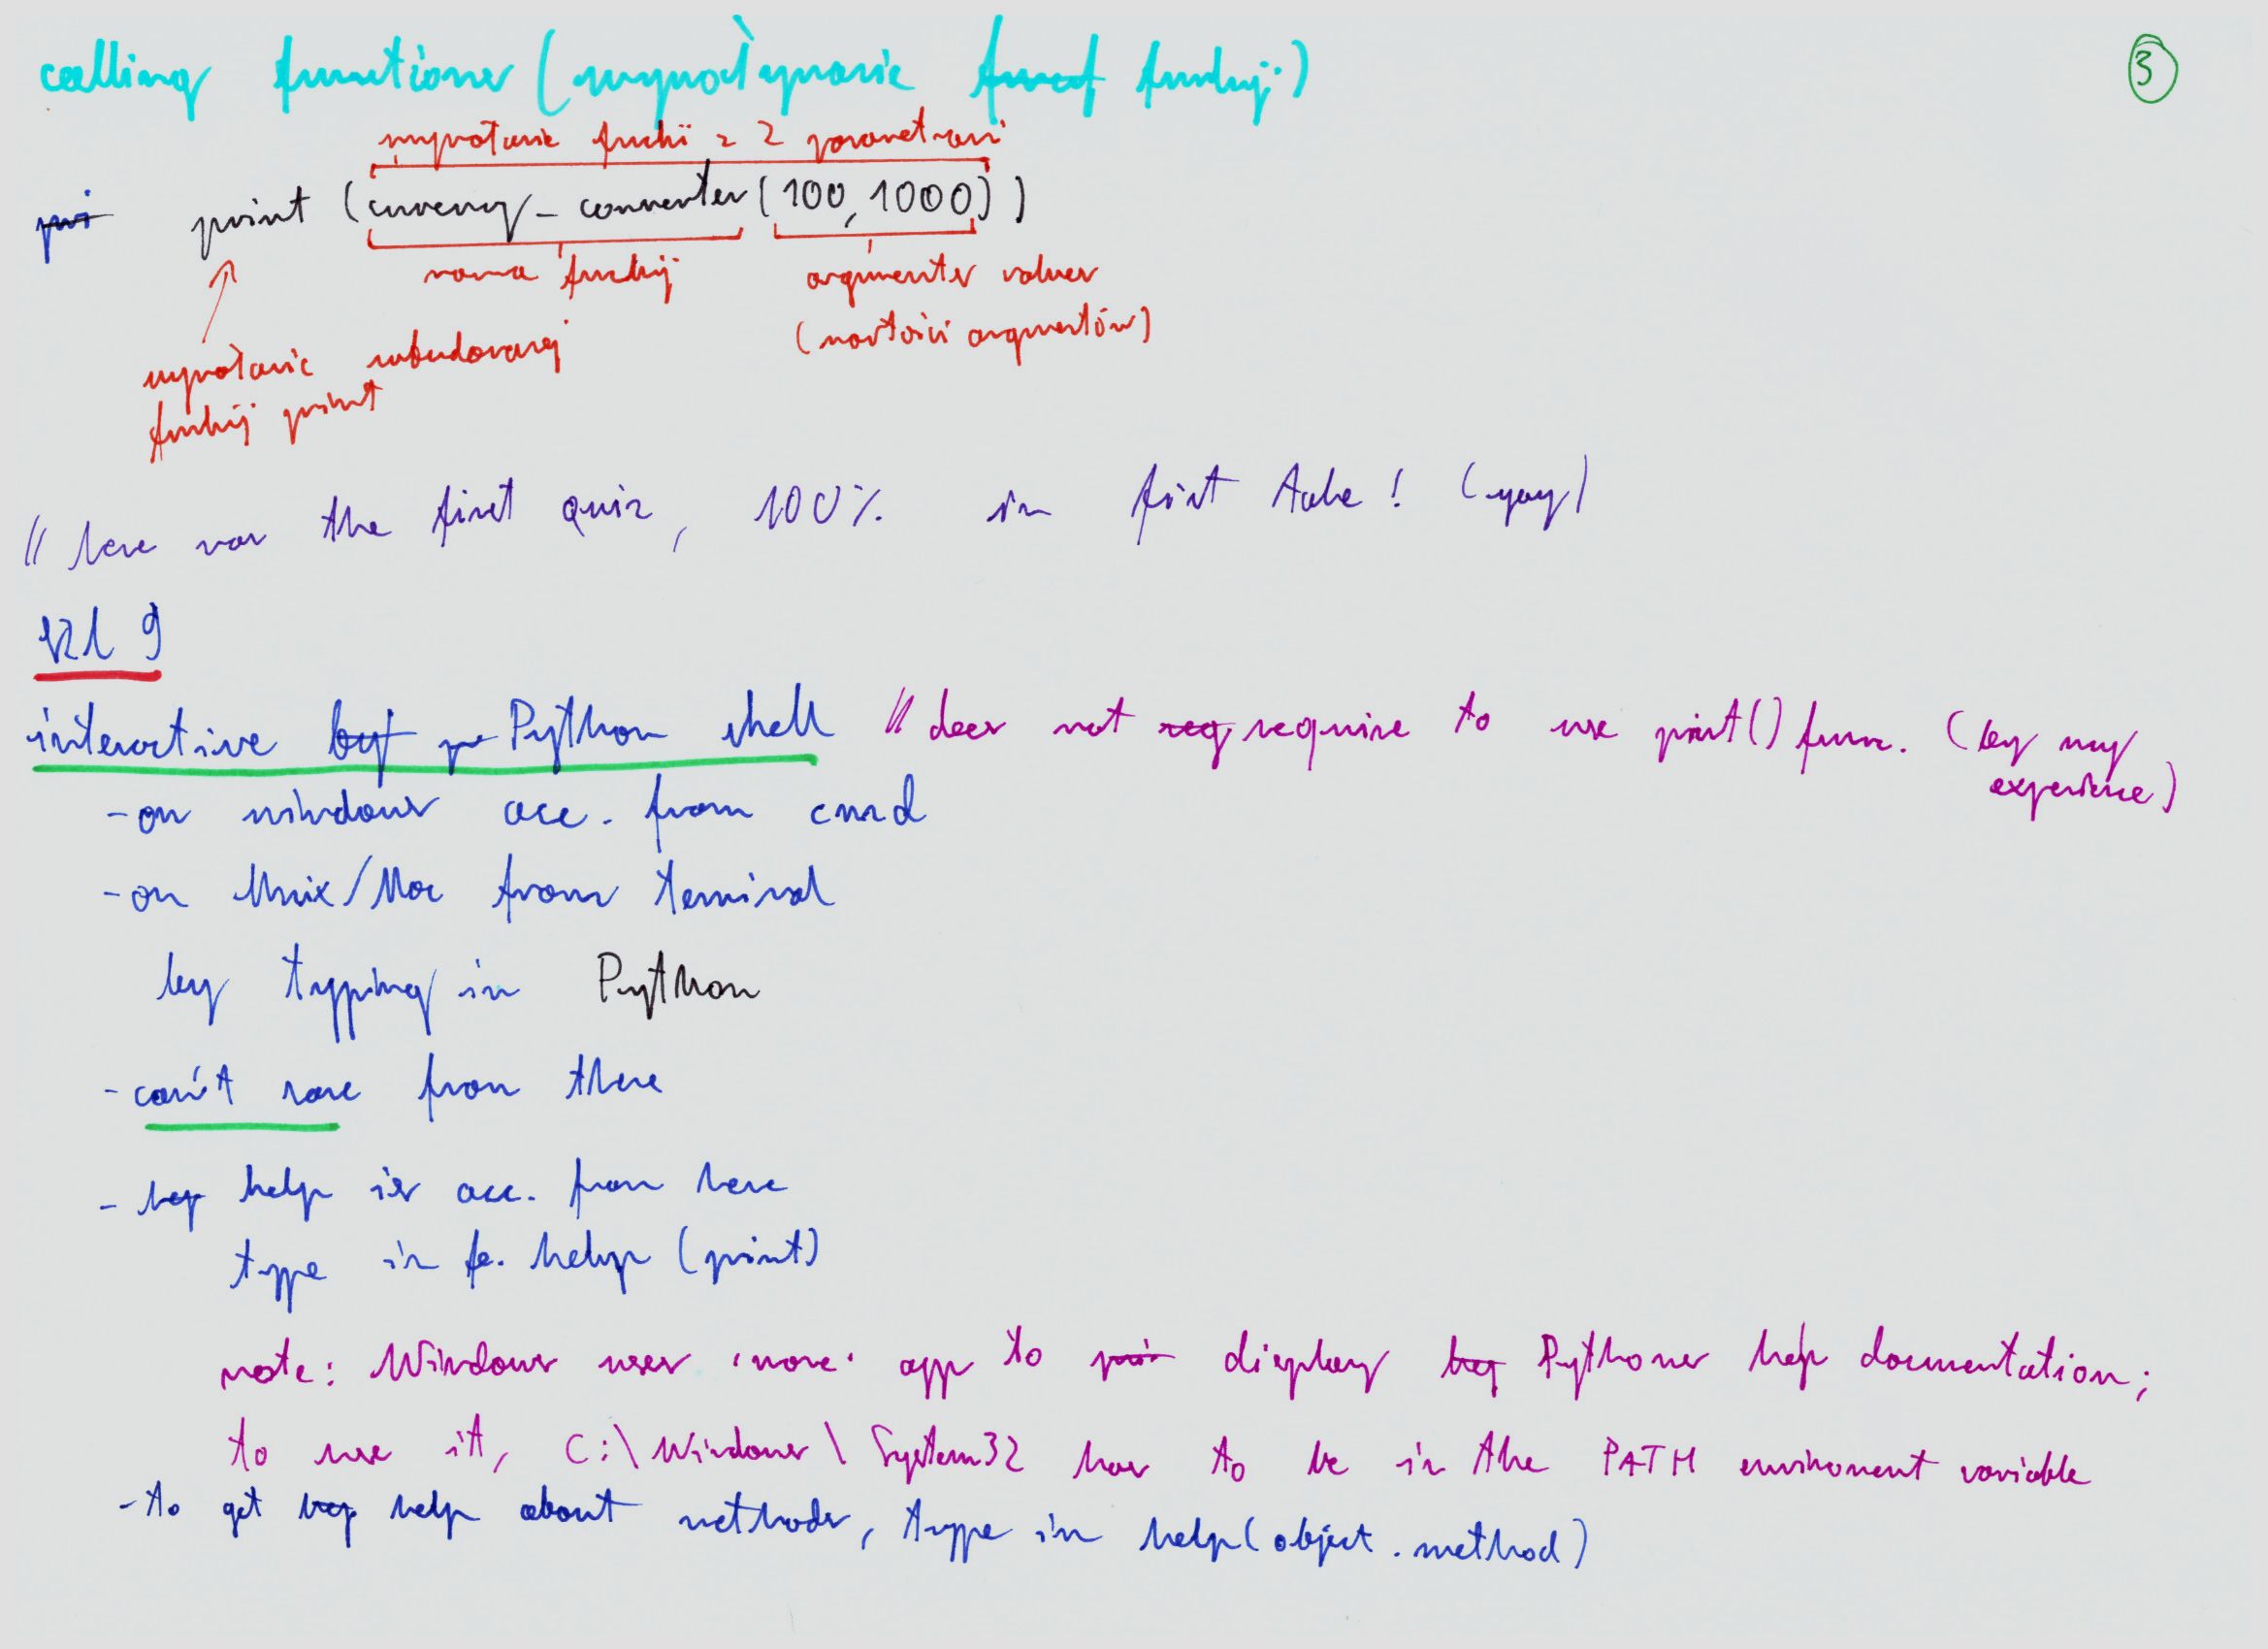 calling functions (wywoływanie funct funkcji) 3
wywołanie funkcji z 2 parametrami
pri print (currency_converter(100, 1000))
nazwa funkcji arguments values
(wartości argumentów)
wywołanie wbudowanej
funkcji print
// here was the first quiz, 100% in first take! (yay)
9
interactive Python shell // does not req require to use print() func. (by my
experience)
- on windows acc. from cmd
- on Unix/Mac from terminal
by typing in Python
- can't save from there
- hep help is acc. from here
type in fe. help (print)
note: Windows uses 'more' app to pri display hep Pythons help documentation;
to use it, C:\Windows\System32 has to be in the PATH environment variable
- to get hep help about methods, type in help(object.method)